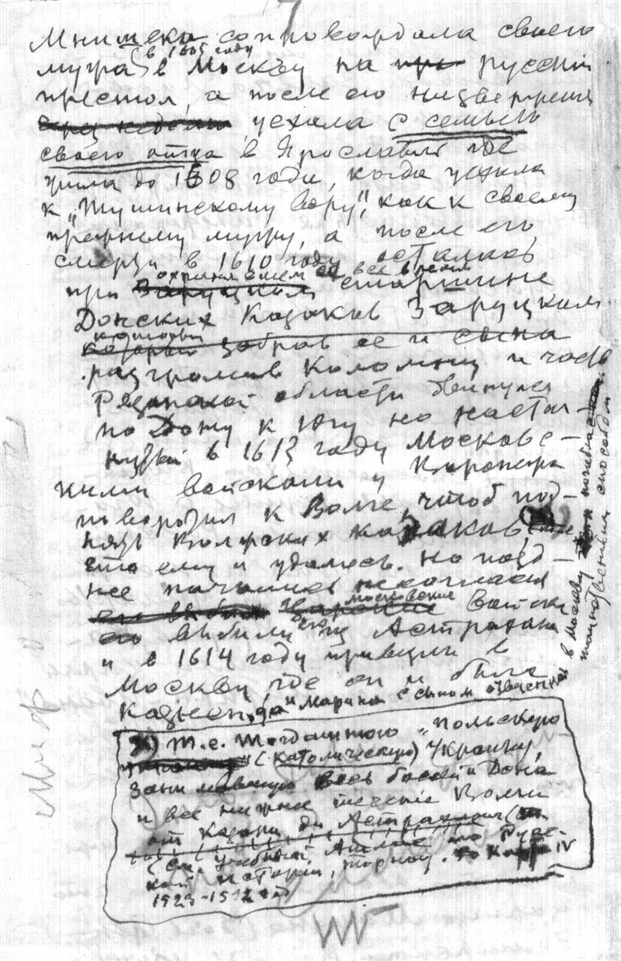 7
Мнишека сопровождала своего
мужа в 1605 году в Москву на русский
престол, а после его низвержения
уехала с семьею
своего отца в Ярославль где
жила до 1608 года, когда уехала
к "Тушинскому Вору", как к своему
прежнему мужу, а после его
смерти в 1610 году осталась
при все время старшине
Донских Казаков Заруцком
который забрав ее и сына
разгромив Коломну и часть
Рязанской области двинулся
по Дону к Югу но настиг-
нутый в 1613 году Московс-
кими войсками у Воронежа
повородил к Волге, чтоб под-
нять Волжских казаков,
что ему и удалось. Но позд-
нее начались несогласия
московские войска
выбили его из Астрахани
и в 1614 году привели в
Москву где он и был
казнен, а Марина с сыном отвезена
в Москву погибла
способом
Т.е. Тогдашнюю "Польскую
(католическую) Украину,
занимавшую весь бассейн Дона
и все нижнее течение Волги
от Казани до Астрахани
(см. учебный Атлас по Русс-
кой истории, Торнау. Карта IV
1523-1532 гг
Миф